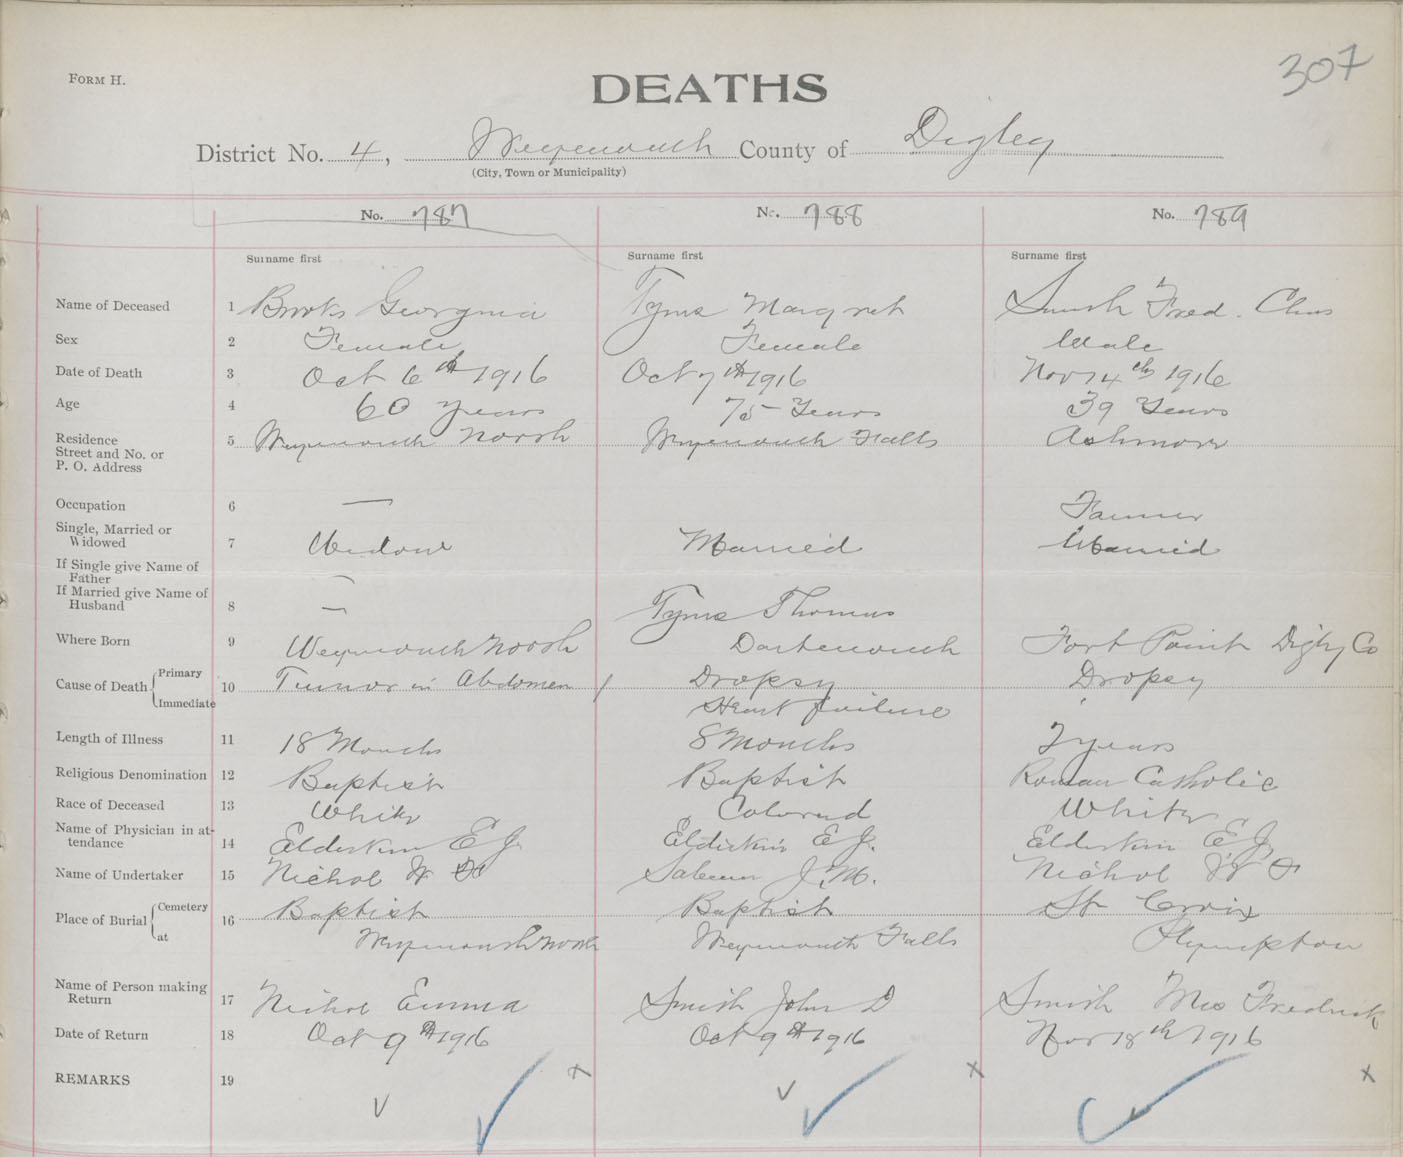 307
FORM H.
DEATHS
District No. 4, Weymouth County of Digby
(City, Town or Municipality)
No. 787 No. 788 No. 789
Surname first Surname first Surname first
Name of Deceased 1 Brooks Georgina Tyms Margret Smith Fred. Chas
Sex 2 Female Female Male
Date of Death 3 Oct 6th 1916 Oct 7th 1916 Nov 14th 1916
Age 4 60 years 75 Years 39 Years
Residence
Street and No. or 5 Weymouth North Weymouth Falls Ashmore
P. O. Address
Occupation 6 — Farmer
Single, Married or
Widowed 7 Widow Married Married
If Single give Name of
Father —
If Married give Name of
Husband 8 — Tyms Thomas
Where Born 9 Weymouth North Dartmouth Fort Point Digby Co
Cause of Death Primary 10 Tumor in Abdomen Dropsy Dropsy
Immediate Heart failure
Length of Illness 11 18 Months 8 Months 2 years
Religious Denomination 12 Baptist Baptist Roman Catholic
Race of Deceased 13 White Colored White
Name of Physician in at-
tendance 14 Elderkin E J. Elderkin E J. Elderkin E J.
Name of Undertaker 15 Nichol W Sabean J. M. Nichol W
Place of Burial Cemetery 16 Baptist Baptist St Croix
at Weymouth North Weymouth Falls Plympton
Name of Person making
Return 17 Nichol Emma Smith John D Smith Mrs Fredrick
Date of Return 18 Oct 9th 1916 Oct 9th 1916 Nov 18th 1916
REMARKS 19 x x x